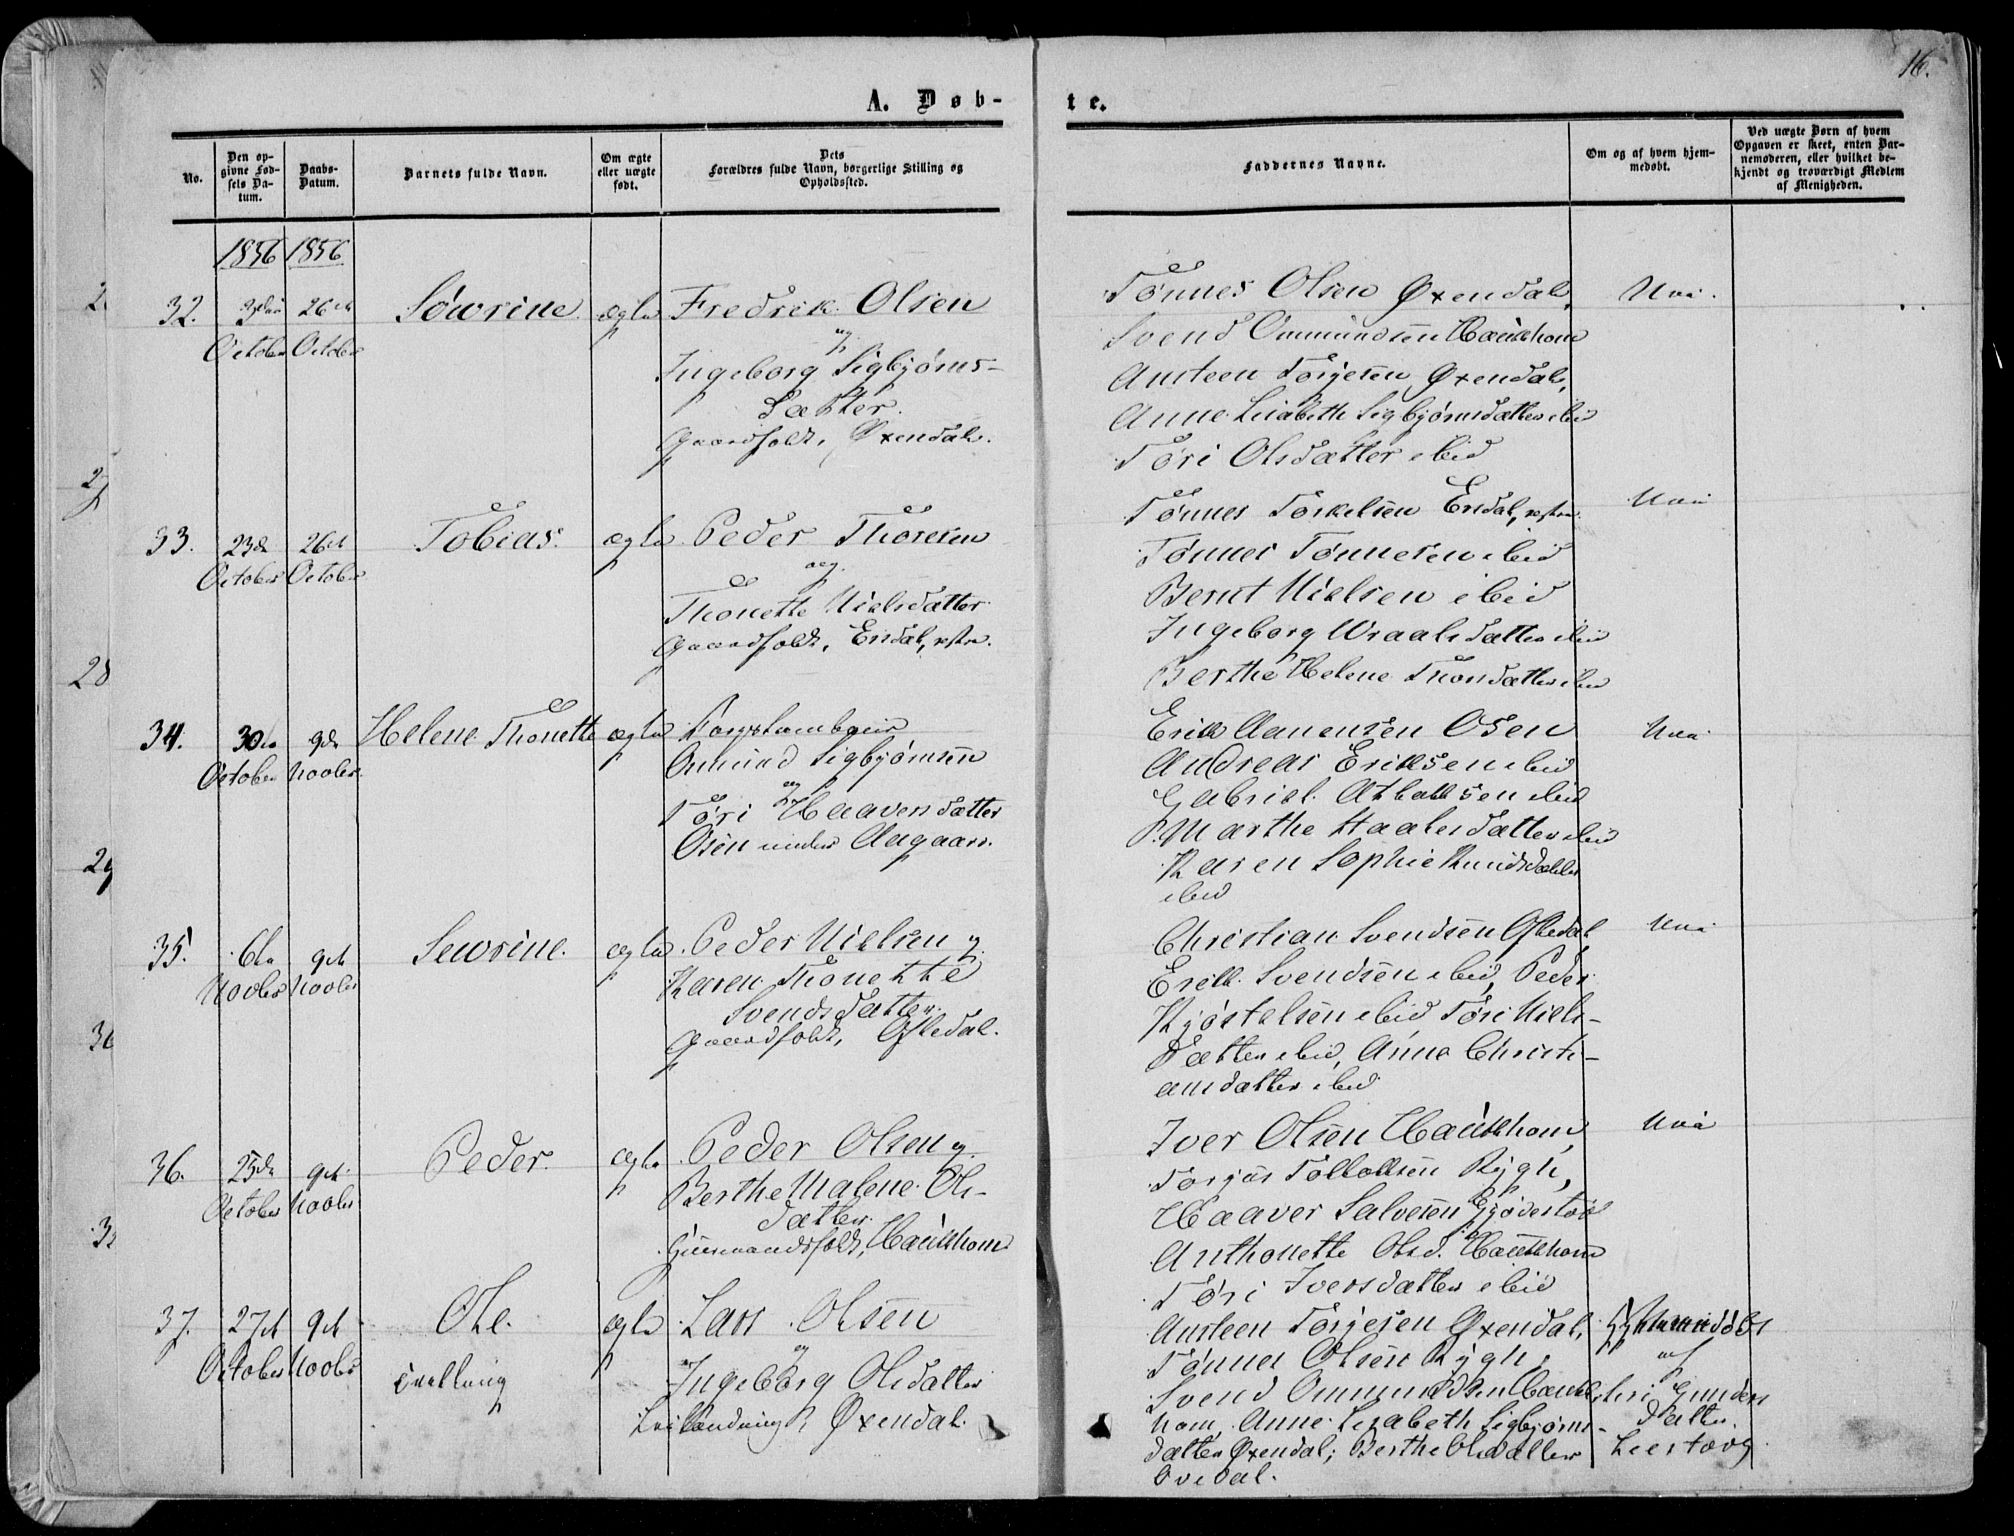 16.
A. Døb-
te.
No.
Den op-
givne Fød-
sels Da-
tum.
Daabs-
Datum.
Barnets fulde Navn.
Om ægte
eller uægte
født.
Dets
Forældres fulde Navn, borgerlige Stilling og
Opholdssted.
Faddernes Navne.
Om og af hvem hjem-
medøbt.
Ved uægte Børn af hvem
Opgaven er skeet, enten Bar-
nemoderen, eller hvilket be-
kjendt og troværdigt Medlem
af Menigheden.
1856 1856
32.
October
26de
October
Søvrine
ægte
Fredrik Olsen
og
Ingeborg Sigbjørns-
datter.
Gaardfolk, Øxendal.
Tønnes Olsen Øxendal,
Svend Ommundsen Haukhom
Ansteen Torjesen Øxendal,
Anne Lisabeth Sigbjørnsdatter ibid
Tøri Olsdatter ibid
Nei.
33.
23de
October
26de
October
Tobias.
ægte
Peder Thoresen
og
Thonette Nielsdatter
Gaardfolk, Eisdal, østre.
Tønnes Torkelsen Eisdal, østre.
Tønnes Tønnesen ibid
Bernt Nielsen ibid
Ingeborg Wraalsdatter ibid
Berthe Helene Thorsdatter ibid
Nei
34.
30te
October
9de
Novbr.
Helene Thonette
ægte
Ommund Sigbjørnsen
og
Tøri Haaversdatter
Osen under Aagaarn.
Erik Aanensen Osen
Andreas Eriksen ibid
Gabriel Atlaksen ibid
Marthe Staalesdatter ibid
Karen Sophie Knudsdatter
ibid
Nei
35.
6te
Novbr
9de
Novbr
Sevrine.
ægte
Peder Nielsen og
Karen Thonette
Svendsdatter.
Gaardfolk, Oftedal.
Christian Svendsen Oftedal
Erik Svendsen ibid, Peder
Kjøstelsen ibid Tøri Niels-
datter ibid, Anna Christi-
ansdatter ibid
Nei
36.
25de
October
9de
Novbr
Peder.
ægte
Peder Olsen og
Berthe Malene Ols-
datter.
Huusmandsfolk, Haukhom
Iver Olsen Haukhom,
Torjus Tollaksen Rygh,
Haaver Salvesen Gjødestøl
Anthonette Olsd. Haukhom
Tøri Iversdatter ibid
Nei
37.
27de
October
9de
Novbr
Ole.
Tvilling
ægte
Lars Olsen
og
Ingeborg Olsdatter
Øxendal.
Ansteen Torjesen Øxendal,
Tønnes Olsen Rygh,
Svend Ommundsen Hauk-
hom, Anne Lisabeth Sigbjørns-
datter Øxendal; Berthe Olsdatter
Ovedal.
Hjemmedøbt
af
Siri Gunders
datter
Leestovg
2
27
28
29
30
3